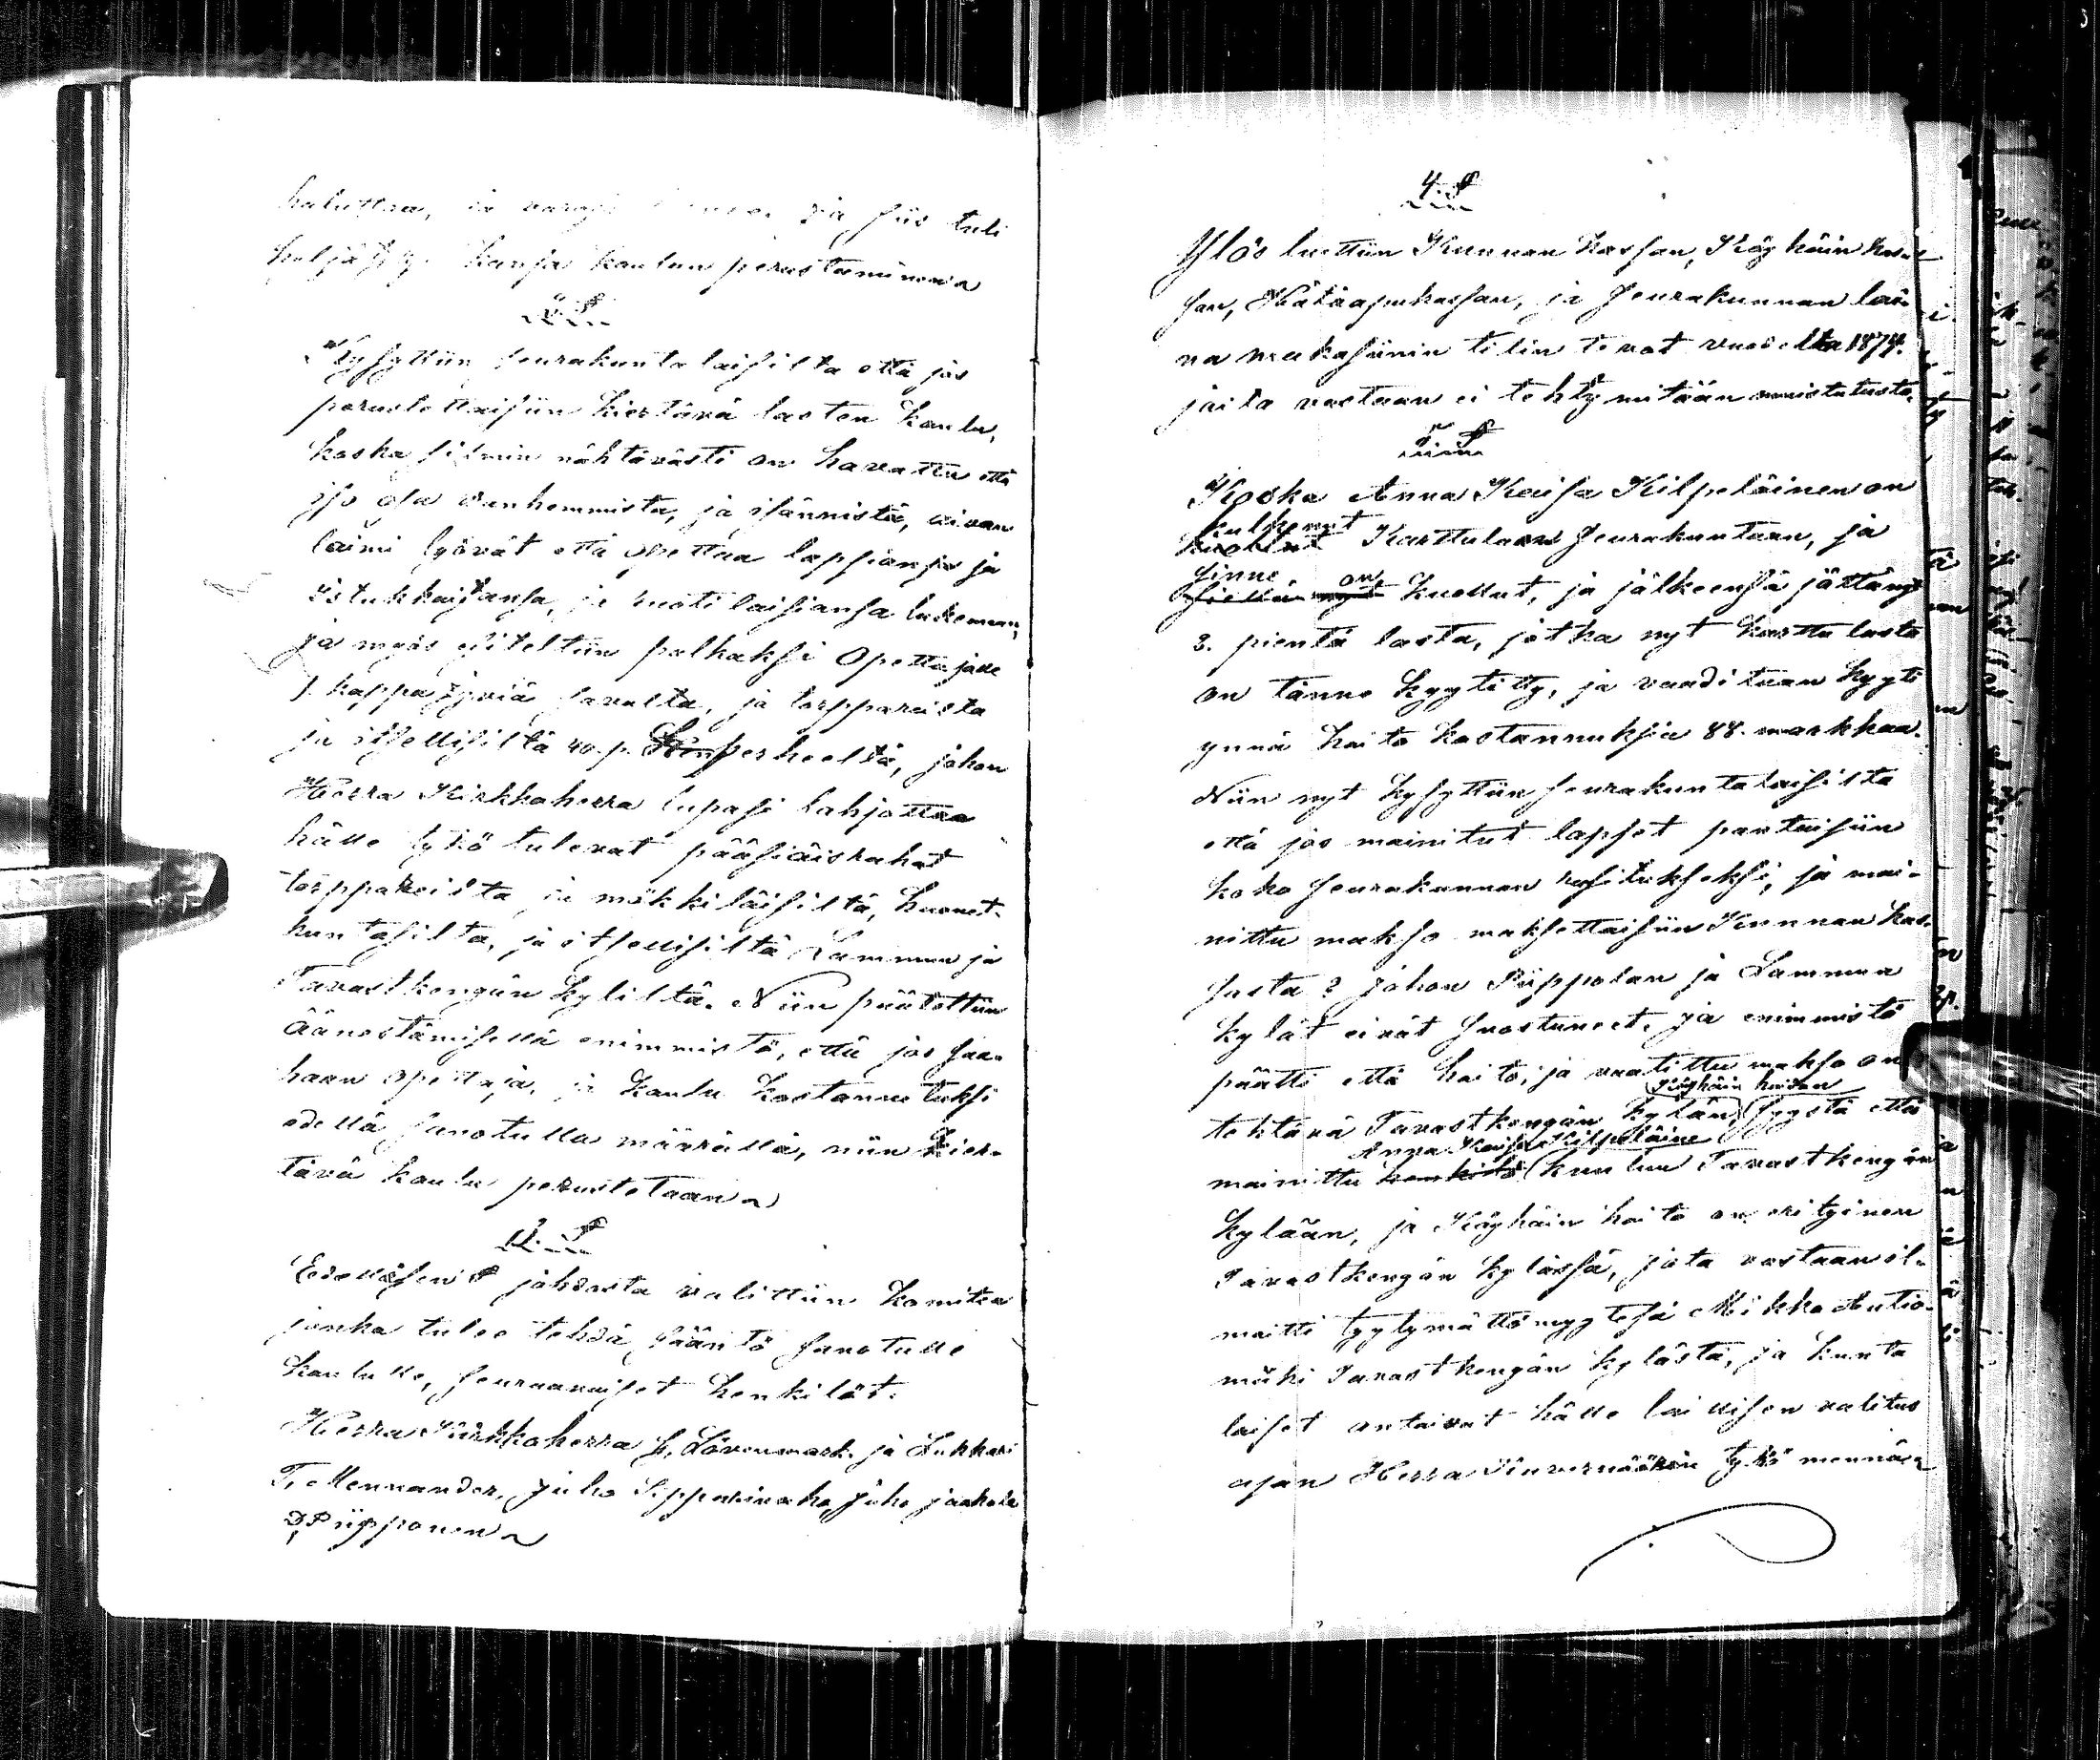 haluttaa, ja ja siis tuli
hyljätyx. Kansa koulun perustaminen
2. §
Kysyttiin seurakuntalaisilta että jos
perustettaisiin kiertävä lasten koulu,
koska silmin nähtävästi on havattu että
iso osa vanhemmista, ja isännistä, aivan
laimi lyövät että opettaa lapsiansa ja
istukkaitansa, ja huotilaisiansa lukemaan,
ja myös esiteltiin palkaksi Opettajalle
1. kappa jyviä savulta, ja torppareista
ja itsellisiltä 40. p. perheeltä, johon
Herra Kirkkoherra lupasi lahjottaa
hälle tykö tulevat pääsiäisrahat
torppareista ja mökkiläisiltä, huonet-
kuntasilta, ja itsellisiltä Lammun ja
Tavastkengän kyliltä. Niin päätettiin
äänestämisellä enimmistö, että jos saa-
haan opettaja, ja koulu kostannetuksi
edellä sanotulla määrällä, niin kier-
tävä koulu perustetaan
3. §
Edellisen § johdosta valittiin Komitea
jonka tulee tehdä sääntö sanotulle
koululle, seuraavaiset henkilöt.
Herra Kirkkoherra L. Lövenmark. ja Lukkari
T. Mennander, Juho Sipparinaho, Juho Jaakola
D. Piipponen
4. §
Ylös luettiin Kunnan kassan, Köyhäin kas-
san, Hätäapukassan, ja seurakunnan lai-
na makasiinin tilin tevot vuodelta 1874.
joita vastaan ei tehty mitään muistutusta.
5. §
Koska Anna Kaisa Kilpeläinen on
kulkenut
kuollut Karttulaan seurakuntaan, ja
sinne on
siellä nyt kuollut, ja jälkeensä jättänyt
3. pientä lasta, jotka nyt karttulasta
on tänne kyytitty, ja vaaditaan kyyti
ynnä hoito kostannuksia 88. markkaa.
Niin nyt kysyttiin seurakuntalaisilta
että jos mainitut lapset pantaisiin
koko seurakunnan rasitukseksi, ja mai-
nittu makso maksettaisiin Kunnan kas-
sasta? johon Piippolan ja Lammun
kylät eivät suostuneet. ja enimmistö
päätti että hoito, ja vaatittu makso on
köyhäin hoidon
tehtävä Tavastkengän kylän, syystä että
Anna Kaisa Kilpeläine
mainittu henkilö kuuluu Tavastkengän
kylään, ja Köyhäin hoito on erityinen
Tavastkengän kylässä, jota vastaan il-
moitti tyytymättömyytesä Mikko Autio-
mäki Tavastkengän kylästä, ja kunta
laiset antaivat hälle laillisen valitus
ajan Herra Kuvernöörin tykö mennä